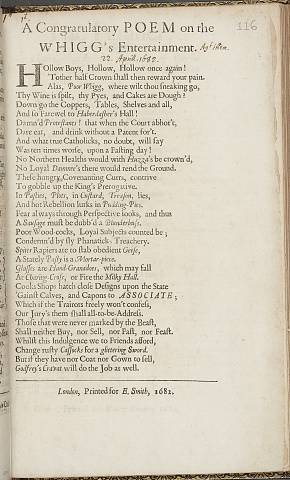 116
A Congratulatory POEM on the
WHIGG's Entertainment.
22. April. 1682.
HOllow Boys, Hollow, Hollow once again!
Tother half Crown shall then reward your pain.
Alas, Poor Whigg, where wilt thou sneaking go,
Thy Wine is spilt, thy Pyes, and Cakes are Dough?
Down go the Coppers, Tables, Shelves and all,
And so Farewel to Haberdasher's Hall!
Damn'd Protestants! that when the Court abhor't,
Dare eat, and drink without a Patent for't.
And what true Catholicks, no doubt, will say
Was ten times worse, upon a Fasting day!
No Northern Healths would with Huzza's be crown'd,
No Loyal Damme's there would rend the Ground.
These hungry, Covenanting Curs, contrive
To gobble up the King's Prerogative.
In Pasties, Plots, in Custard, Treason, lies,
And hot Rebellion lurks in Pudding-Pies.
Fear always through Perspective looks, and thus
A Sausage must be dubb'd a Blunderbuss.
Poor Wood-cocks, Loyal Subjects counted be;
Condemn'd by sly Phanatick-Treachery.
Spiter Rapiers are to stab obedient Geese,
A Stately Pasty is a Mortar-piece.
Glasses are Hand-Granadoes, which may fall
At Charing-Cross, or Fire the Milky Hall.
Cooks Shops hatch close Designs upon the State
'Gainst Calves, and Capons to ASSOCIATE;
Which if the Traitors freely won't confess,
Our Jury's them shall all-to-be-Address.
Those that were never marked by the Beast,
Shall neither Buy, nor Sell, nor Fast, nor Feast.
Whilst this Indulgence we to Friends afford,
Change rusty Cassocks for a glittering Sword.
But if they have nor Coat nor Gown to sell,
Godfrey's Cravat will do the Job as well.
London, Printed for E. Smith, 1682.